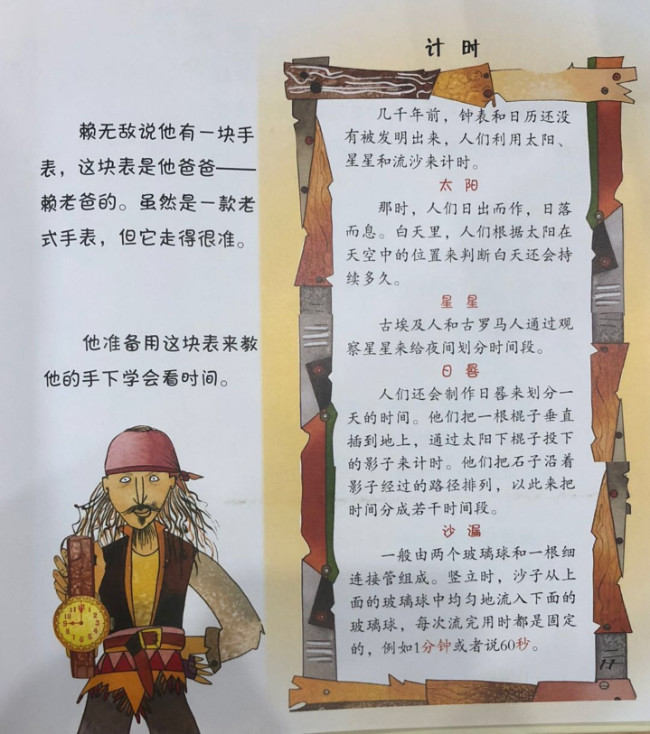 赖无敌说他有一块手
表，这块表是他爸爸——
赖老爸的。虽然是一款老
式手表，但它走得很准。
他准备用这块表来教
他的手下学会看时间。
计时
几千年前，钟表和日历还没
有被发明出来，人们利用太阳、
星星和流沙来计时。
太阳
那时，人们日出而作，日落
而息。白天里，人们根据太阳在
天空中的位置来判断白天还会持
续多久。
星星
古埃及人和古罗马人通过观
察星星来给夜间划分时间段。
日晷
人们还会制作日晷来划分一
天的时间。他们把一根棍子垂直
插到地上，通过太阳下棍子投下
的影子来计时。他们把石子沿着
影子经过的路径排列，以此来把
时间分成若干时间段。
沙漏
一般由两个玻璃球和一根细
连接管组成。竖立时，沙子从上
面的玻璃球中均匀地流入下面的
玻璃球，每次流完用时都是固定
的，例如1分钟或者说60秒。